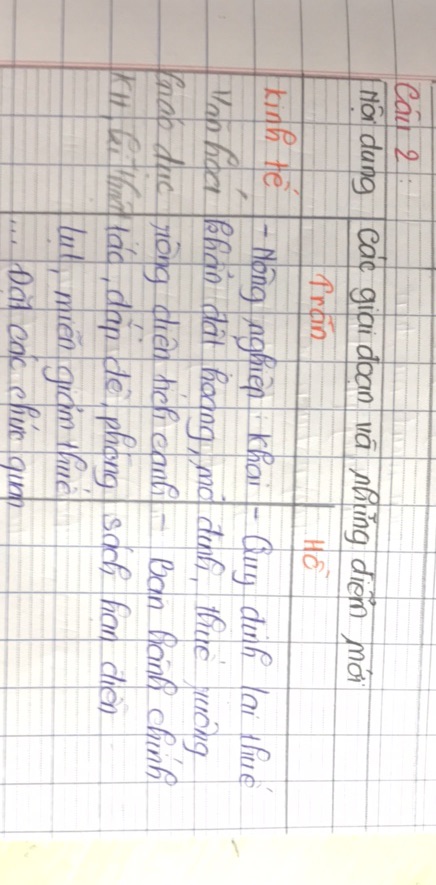 Câu 2:
Nội dung các giai đoạn và những điểm mới
Trần Hồ
Kinh tế - Nông nghiệp: Khai - Quy định lại thuế
Văn hoá khẩn đất hoang, mở đinh, thuế ruộng
Giáo dục rộng diện tích canh - Ban hành chính
KH, kĩ thuật tác, đắp đê, phòng sách hạn điền
lụt, miễn giảm thuế
... Đặt các chức quan